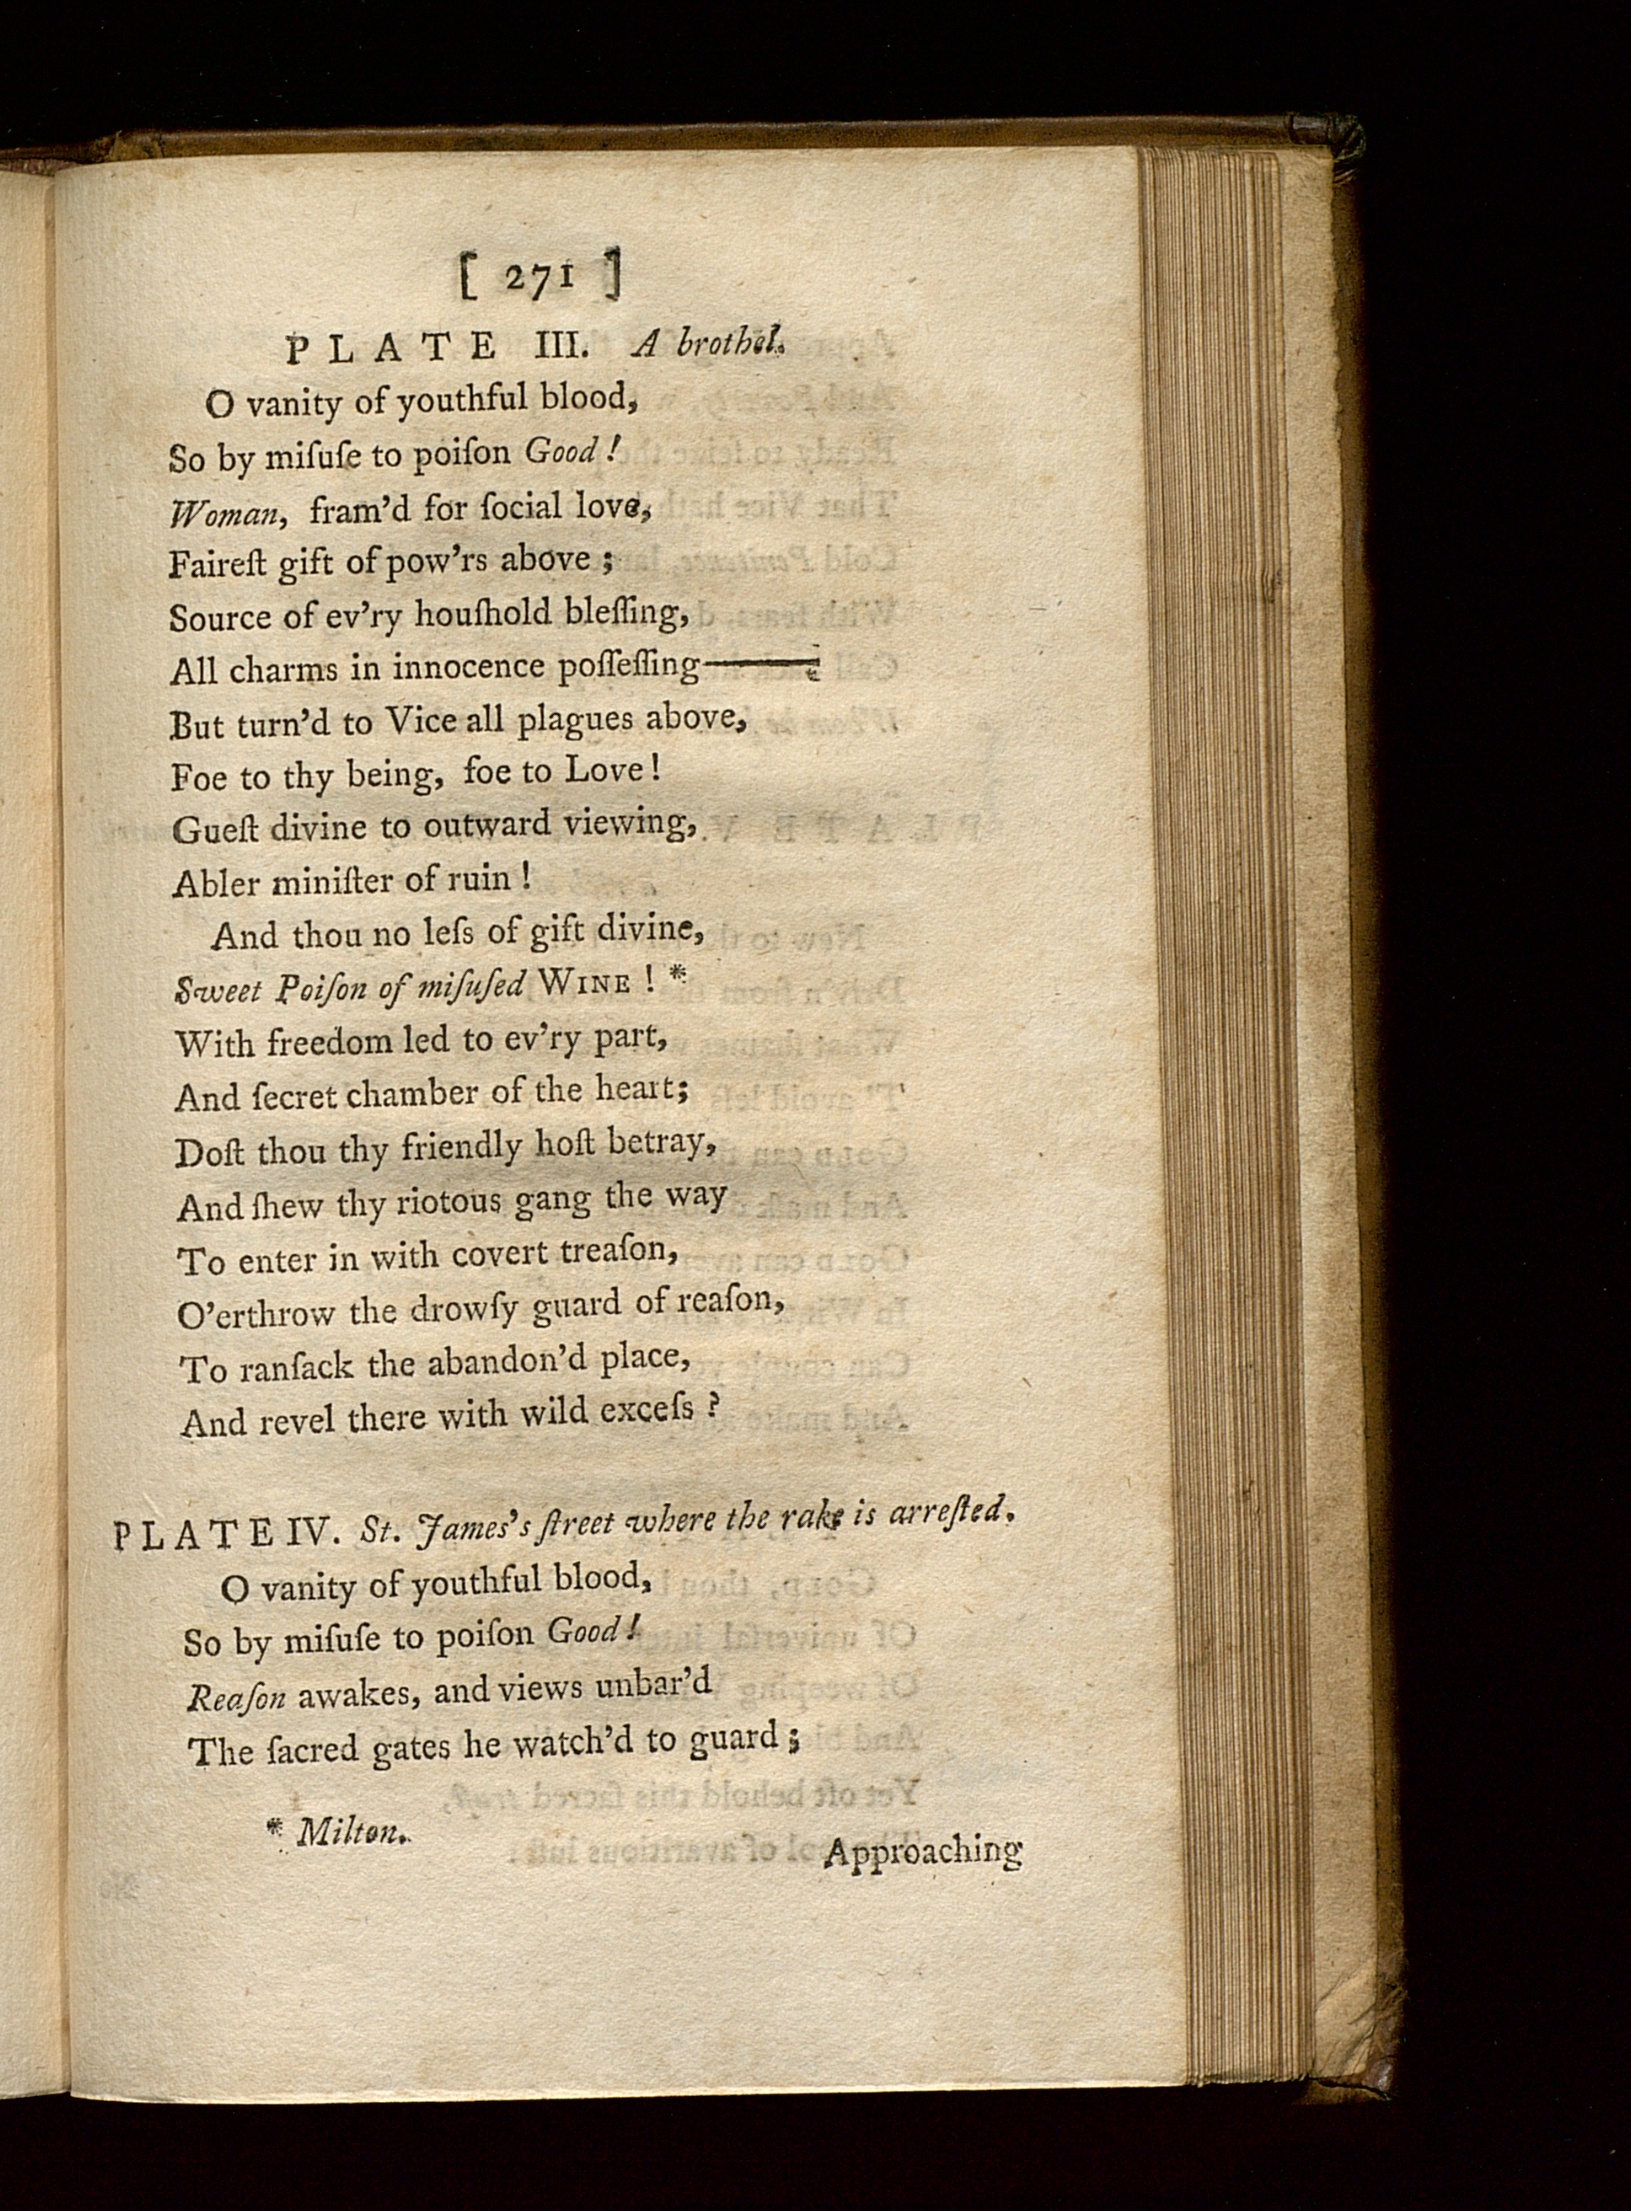 [ 271 ]
PLATE III. A brothel.
O vanity of youthful blood,
So by miſuſe to poiſon Good !
Woman, fram'd for ſocial love,
Faireſt gift of pow'rs above ;
Source of ev'ry houſhold bleſſing,
All charms in innocence poſſeſſing——
But turn'd to Vice all plagues above,
Foe to thy being, foe to Love !
Gueſt divine to outward viewing,
Abler miniſter of ruin !
And thou no leſs of gift divine,
Sweet Poiſon of miſuſed WINE ! *
With freedom led to ev'ry part,
And ſecret chamber of the heart;
Doſt thou thy friendly hoſt betray,
And ſhew thy riotous gang the way
To enter in with covert treaſon,
O'erthrow the drowſy guard of reaſon,
To ranſack the abandon'd place,
And revel there with wild exceſs ?
PLATE IV. St. James's ſtreet where the rake is arreſted.
O vanity of youthful blood,
So by miſuſe to poiſon Good !
Reaſon awakes, and views unbar'd
The ſacred gates he watch'd to guard ;
* Milton.
Approaching